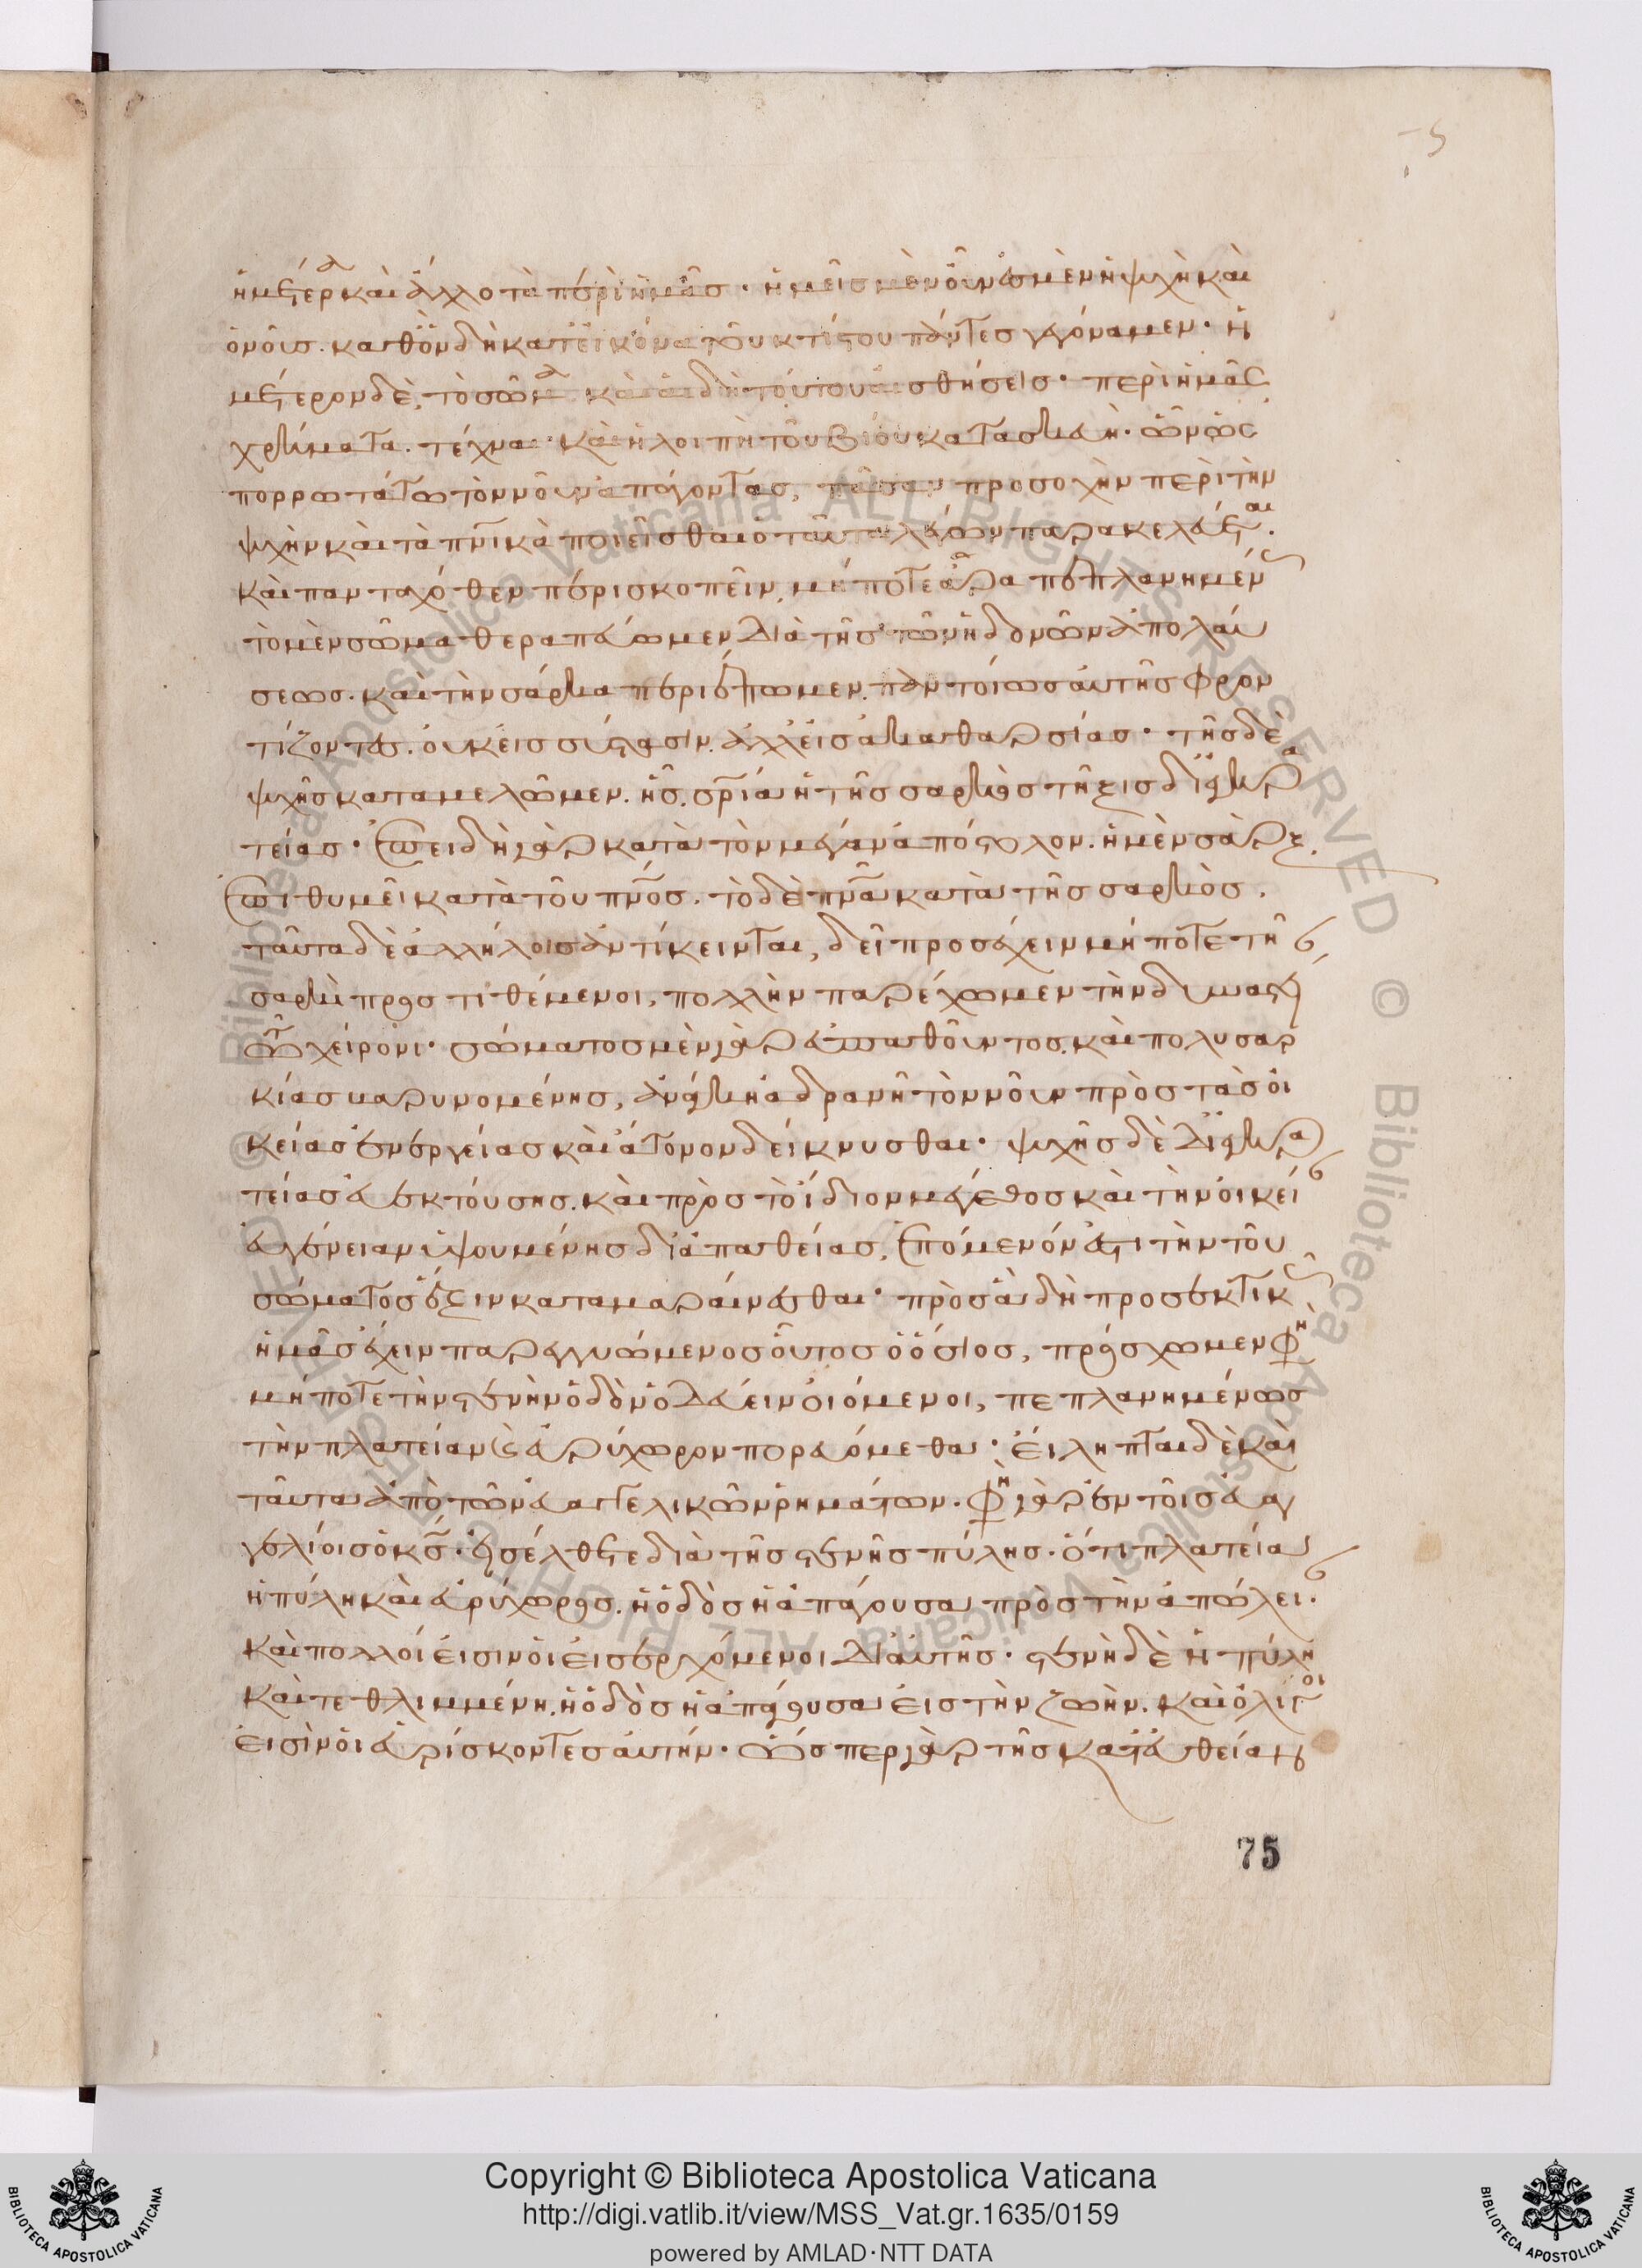 ἡμέτερα καὶ ἄλλο τὰ περὶ ἡμᾶς· ἡμεῖς μὲν οὖν ἐσμὲν ἡ ψυχὴ καὶ
ὁ νοῦς. καθ' ὃν δὴ κατ' εἰκόνα τοῦ κτίσαντος γεγόναμεν· ἡ
μέτερον δὲ, τὸ σῶμα καὶ αἱ διὰ τούτου αἰσθήσεις· περὶ ἡμᾶς
χρήματα. τέχναι καὶ ἡ λοιπὴ τοῦ βίου κατασκευὴ. ὧν ὡς
πορρωτάτω τὸν νοῦν ἀπάγοντας, πᾶσαν προσοχὴν περὶ τὴν
ψυχὴν καὶ τὰ πνικὰ ποιεῖσθαι ὁ ταῦτα λέγων παρακελεύεται.
καὶ πανταχόθεν περισκοπεῖν, μήποτε ἄρα πεπλανημένως
τὸ μὲν σῶμα θεραπεύωμεν διὰ τῆς τῶν ἡδονῶν ἀπολαύ
σεως. καὶ τὴν σάρκα περιέπωμεν. παντοίως αὐτῆς φρον
τίζοντες. οὐκ εἰς σύστασιν. ἀλλ' εἰς ἀκαθαρσίας· τῆς δὲ
ψυχῆς καταμελῶμεν. ἧς σρία ἡ τῆς σαρκὸς τῆξις δι' ἐγκρα
τείας· ἐπειδὴ γὰρ κατὰ τὸν μέγαν ἀπόστολον. ἡ μὲν σὰρξ
ἐπιθυμεῖ κατὰ τοῦ πνος. τὸ δὲ πνα κατὰ τῆς σαρκὸς.
ταῦτα δὲ ἀλλήλοις ἀντίκεινται, δεῖ προσέχειν μήποτε τῆ
σαρκὶ προστιθέμενοι, πολλὴν παρέχωμεν τὴν δυναστείαν
τῶ χείρονι· σώματος μὲν γὰρ εὐπαθοῦντος. καὶ πολυσαρ
κίας βαρυνομένης, ἀνάγκη ἀδρανῆ τὸν νοῦν πρὸς τὰς οἰ
κείας ἐνεργείας καὶ ἄτονον δείκνυσθαι· ψυχῆς δὲ δι' ἐγκρα
τείας εὐεκτούσης. καὶ πρὸς τὸ ἴδιον μέγεθος καὶ τὴν οἰκείαν
εὐγένειαν ὑψουμένης δι' ἀπαθείας, ἑπόμενόν ἐστι τὴν τοῦ
σώματος ἕξιν καταμαραίνεσθαι· πρὸς ἃ δὴ προσεκτικῶς
ἡμᾶς ἔχειν παρεγγυώμενος οὗτος ὁ ὅσιος, πρόσχωμεν φη
μήποτε τὴν στενὴν ὁδὸν ὁδεύειν οἰόμενοι, πεπλανημένως
τὴν πλατείαν καὶ εὐρύχωρον πορευόμεθα· εἴληπται δὲ καὶ
ταῦτα ἀπὸ τῶν εὐαγγελικῶν ῥημάτων. φη γὰρ ἐν τοῖς εὐαγ
γελίοις ὁ κς· εἰσέλθετε διὰ τῆς στενῆς πύλης. ὅτι πλατεῖα
ἡ πύλη καὶ εὐρύχωρος. ἡ ὁδὸς ἡ ἀπάγουσα πρὸς τὴν ἀπώλειαν.
καὶ πολλοί εἰσιν οἱ εἰσερχόμενοι δι' αὐτῆς· στενὴ δὲ ἡ πύλη
καὶ τεθλιμμένη. ἡ ὁδὸς ἡ ἀπάγουσα εἰς τὴν ζωὴν. καὶ ὀλίγοι
εἰσὶν οἱ εὑρίσκοντες αὐτήν· ὥσπερ γὰρ τῆς κατ' εὐθείαν
75
Copyright © Biblioteca Apostolica Vaticana
http://digi.vatlib.it/view/MSS_Vat.gr.1635/0159
powered by AMLAD·NTT DATA
BIBLIOTECA APOSTOLICA VATICANA
BIBLIOTECA APOSTOLICA VATICANA